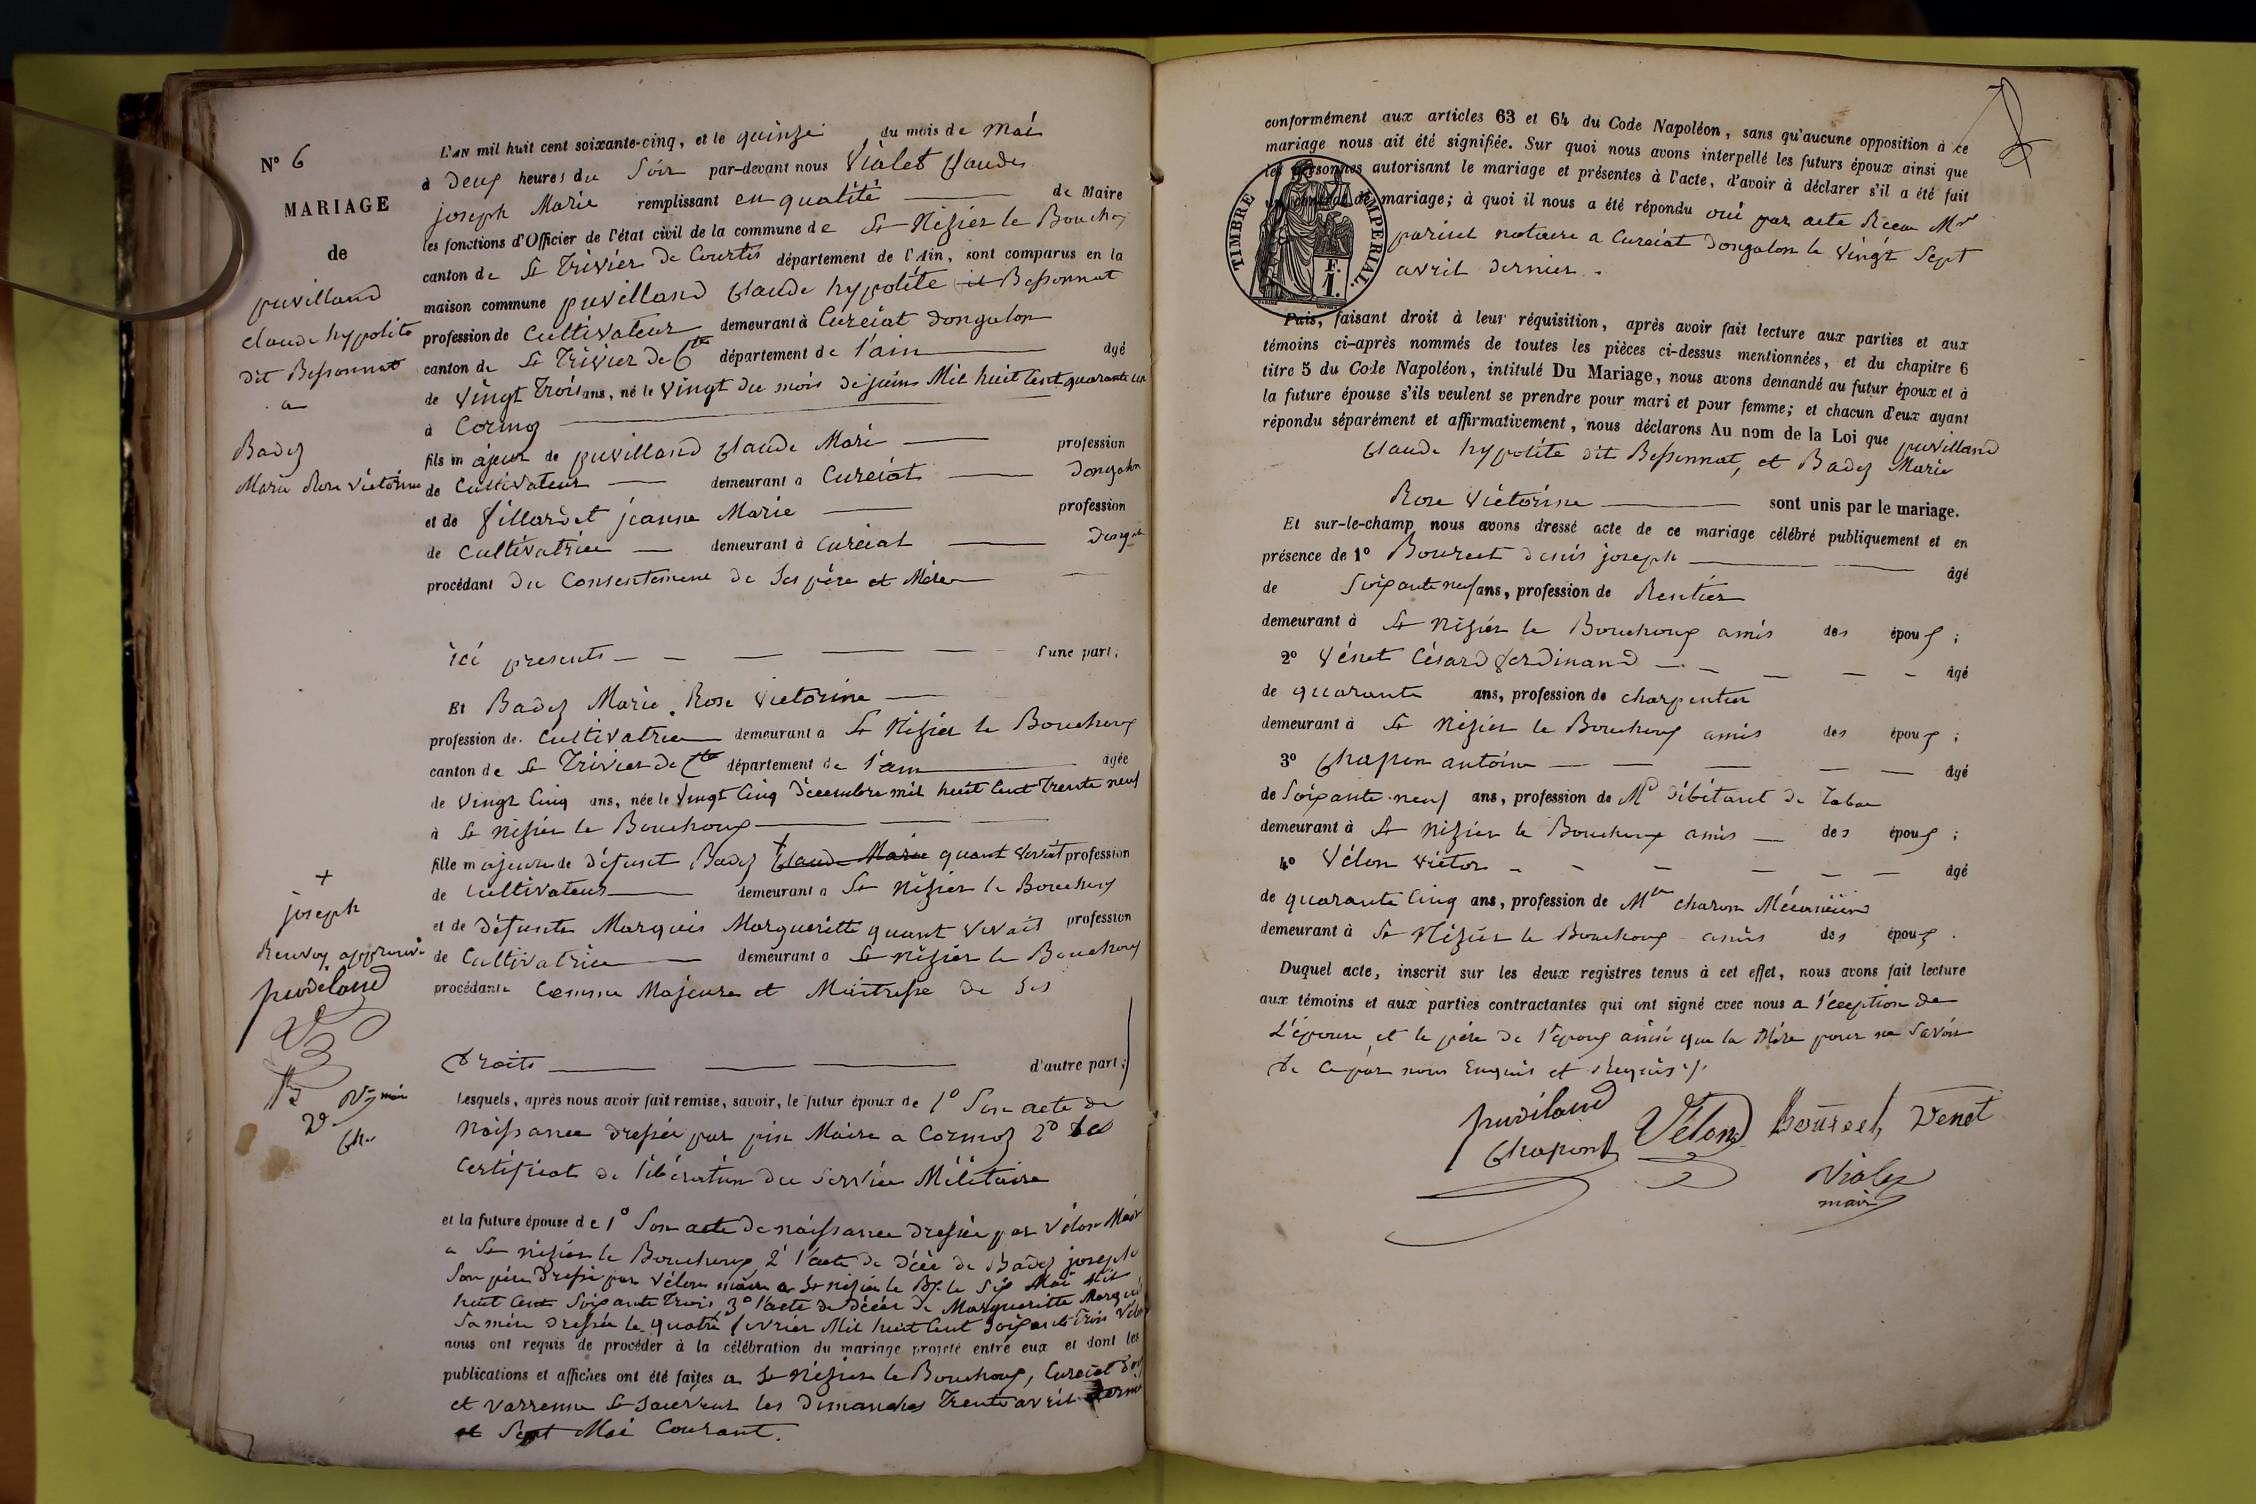 N° 6
MARIAGE
de
puvilland
claude hypolite
dit Bessonnat
a
Badez
Marie Rose Victorine
L'AN mil huit cent soixante-cinq, et le quinze du mois de Mai
à deux heures du Soir par-devant nous Violet Claude
joseph Marie remplissant en qualité de Maire
les fonctions d'Officier de l'état civil de la commune de St Nizier le Bouchoux
canton de St Trivier de Courtes département de l'Ain, sont comparus en la
maison commune puvilland Claude hypolite Bessonnat
profession de Cultivateur demeurant à Curciat dongalon
canton de St Trivier de Ctes département de l'ain âgé
de Vingt Trois ans, né le Vingt du mois de juin Mil huit Cent quarante un
à Cormoz
fils majeur de puvilland Claude Mari profession
de Cultivateur demeurant a Curciat Dongalon
et de fillardet jeanne Marie profession
de Cultivatrice demeurant à Curciat Dongal
procédant du Consentement de Ses père et Mère
ici presents d'une part;
Et Badez Marie Rose Victorine
profession de Cultivatrice demeurant a St Nizier le Bouchoux
canton de St Trivier de Cte département de l'ain âgée
de Vingt Cinq ans, née le Vingt Cinq Décembre mil huit Cent Trente neuf
à St Nizier le Bouchoux
fille majeure de défunt Badez + Claude Marie quant Vivait profession
de Cultivateur demeurant a St Nizier le Bouchoux
et de défunte Marquis Margueritte quant Vivait profession
de Cultivatrice demeurant a St Nizier le Bouchoux
procédante Comme Majeure et Maitresse de Ses
Droits d'autre part;
+
joseph
Renvoy approuvé
puviland
B
Vy mai
V
Ch.
Lesquels, après nous avoir fait remise, savoir, le futur époux de 1° Son acte de
Naissance dressée par pin Maire a Cormoz 2°
Certificat de libération du Service Militaire
et la future épouse de 1° Son acte de naissance dressée par Vélon Maire
a St nizier le Bouchoux, 2° l'acte de décé de Badez joseph
Son père Dressé par Vélon maire a St nizier le Bx le Six Mai Mil
huit Cent Soixante Trois, 3° l'acte de Décée de Margueritte Marqui
Sa mère dressée le quatre fevrier Mil huit Cent Soixante Trois Vélon
nous ont requis de procéder à la célébration du mariage projeté entre eux et dont les
publications et affiches ont été faites a St Nizier le Bouchoux, Curciat Don
et Varrenne St Sauveur les dimanches Trente avril dernier
et Sept Mai Courant.
conformément aux articles 63 et 64 du Code Napoléon, sans qu'aucune opposition à ce
mariage nous ait été signifiée. Sur quoi nous avons interpellé les futurs époux ainsi que
les personnes autorisant le mariage et présentes à l'acte, d'avoir à déclarer s'il a été fait
un contrat de mariage; à quoi il nous a été répondu oui par acte Récu Mr
pariset notaire a Curciat Dongalon le Vingt Sept
avril dernier.
TIMBRE IMPERIAL.
F.
1.
Puis, faisant droit à leur réquisition, après avoir fait lecture aux parties et aux
témoins ci-après nommés de toutes les pièces ci-dessus mentionnées, et du chapitre 6
titre 5 du Code Napoléon, intitulé Du Mariage, nous avons demandé au futur époux et à
la future épouse s'ils veulent se prendre pour mari et pour femme; et chacun d'eux ayant
répondu séparément et affirmativement, nous déclarons Au nom de la Loi que puvilland
Claude hypolite dit Bessonnat, et Badez Marie
Rose Victorine sont unis par le mariage.
Et sur-le-champ nous avons dressé acte de ce mariage célébré publiquement et en
présence de 1° Bourcet denis joseph âgé
de Soixante neuf ans, profession de Rentier
demeurant à St Nizier le Bouchoux amis des époux;
2° Vénet César ferdinand âgé
de quarante ans, profession de charpentier
demeurant à St Nizier le Bouchoux amis des époux;
3° Chapon antoine âgé
de Soixante neuf ans, profession de Md débitant de Tabac
demeurant à St Nizier le Bouchoux amis des époux;
4° Vélon Victor âgé
de quarante Cinq ans, profession de Mtre charon Mécanicien
demeurant à St Nizier le Bouchoux amis des époux.
Duquel acte, inscrit sur les deux registres tenus à cet effet, nous avons fait lecture
aux témoins et aux parties contractantes qui ont signé avec nous a l'éception de
L'épouse et le père de l'époux ainsi que la Mère pour ne Savoir
de Ce par nous Enquis et Requis
puviland
Chapont Velon Bourcet Venet
Violet
maire